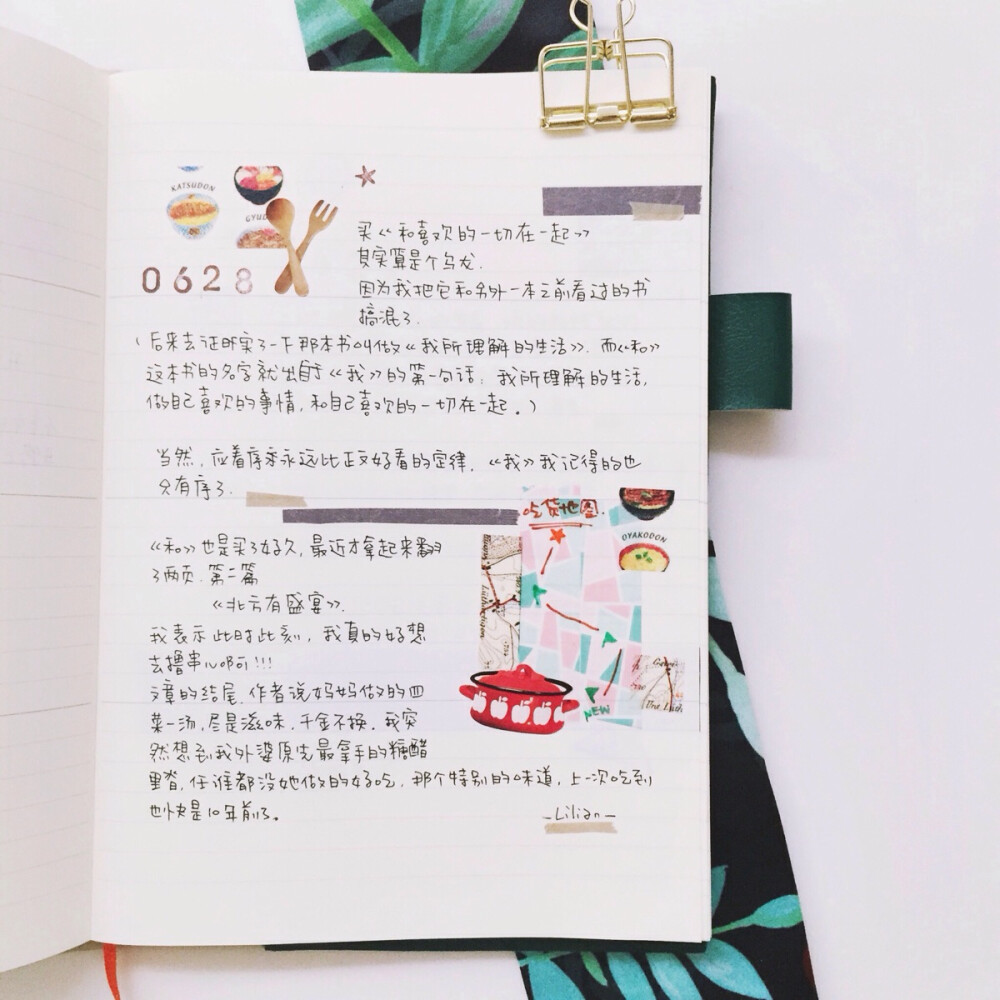 KATSUDON
GYUD
0628
买《和喜欢的一切在一起》
其实算是个乌龙.
因为我把它和另外一本之前看过的书
搞混了.
(后来去证明实了一下那本书叫做《我所理解的生活》. 而《和》
这本书的名字就出自于《我》的第一句话：我所理解的生活,
做自己喜欢的事情,和自己喜欢的一切在一起。)
当然,应着序永远比正文好看的定律,《我》我记得的也
只有序了.
吃货地图.
OYAKODON
《和》也是买了好久,最近才拿起来翻
了两页.第二篇
《北方有盛宴》.
我表示此时此刻,我真的好想
去撸串儿啊!!!
文章的结尾.作者说妈妈做的四
菜一汤,尽是滋味.千金不换.我突
然想到我外婆原先最拿手的糖醋
里脊,任谁都没她做的好吃,那个特别的味道,上一次吃到
也快是10年前了。
NEW
-Lilian-